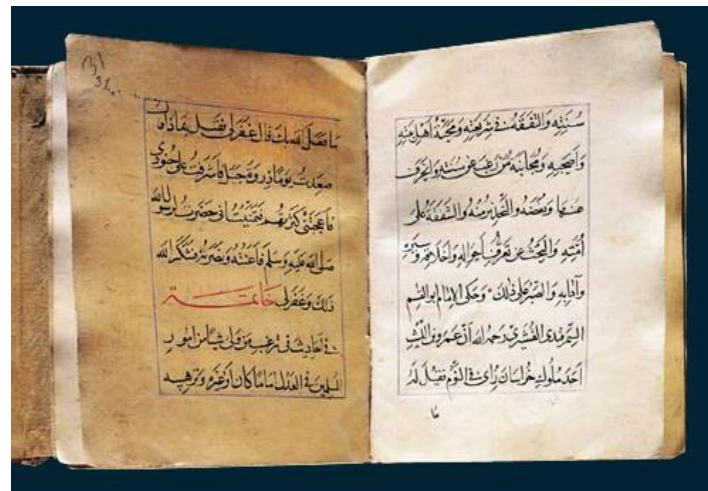 سُنَّتِه وَالتَّفَقُّه في شَرِيعَتِه وَمَحَبَّة اَهْل مِنَّتِه
وَاَصْحَبِه وَمُجَانَبَة مَنْ رَغِبَ عَنْ سُنَّتِه وَانْحَرَفَ
عَنْهَا وَبُغْضه وَالتَّحْذِير مِنْه وَالشَّفَقَة عَلَى
اُمَّتِه وَالْبَحْث عَنْ تَعَرُّف اَحْوَالِه وَاَخْلَاقِه وَسِيَرِه
وَآدَابِه وَالصَّبْر عَلَى ذلِكَ وَحَكَى الْاِمَام ابو القسم
القُشَيْرِي رَحِمَهُ اللَّه اَنَّ عَمْرو بن اللَّيْث
اَحَد مُلُوك خُرَاسَان رُاِيَ في النَّوْم فَقِيلَ لَهُ
مَا فَعَلَ اللَّه بِكَ قال غَفَرَ لِي فَقِيلَ بِمَاذَا قال
صَعِدتُ يَوْمًا ذِرْوَة جَبَل فَاَشْرَفْتُ عَلَى جُنُودِي
فَاَعْجَبَنِي كَثْرَتُهُمْ فَتَمَنَّيْتُ اَنِّي حَضَرْتُ لِرَسُول اللَّه
صَلَّى اللَّه عَلَيْهِ وَسَلَّم فَاَعَنْتُهُ وَنَصَرْتُهُ فَشَكَرَ اللَّه
ذلِكَ وَغَفَرَ لِي خَاتِمَة
في اَحَادِيث في تَرْغِيب مَنْ وَلِيَ شَيْئًا مِن اُمُور
المسلمين في العَدْل اِمَامًا كَانَ اَوْ غَيْرَه وَتَرْهِيبه